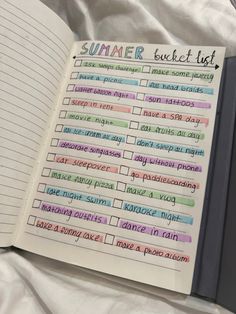 SUMMER bucket list
ask simps challenge make some jewelry
have a picnic do head braids
water balloon night sun tattoos
sleep in tent have a SPA day
movie night eat fruits all day
all ice-cream all day don't sleep all night
decorate sunglasses day without phone
eat sleepover go paddleboarding
make fancy pizza make a mug
late night swim karaoke night
matching outfits dance in rain
bake a funny cake make a photo album